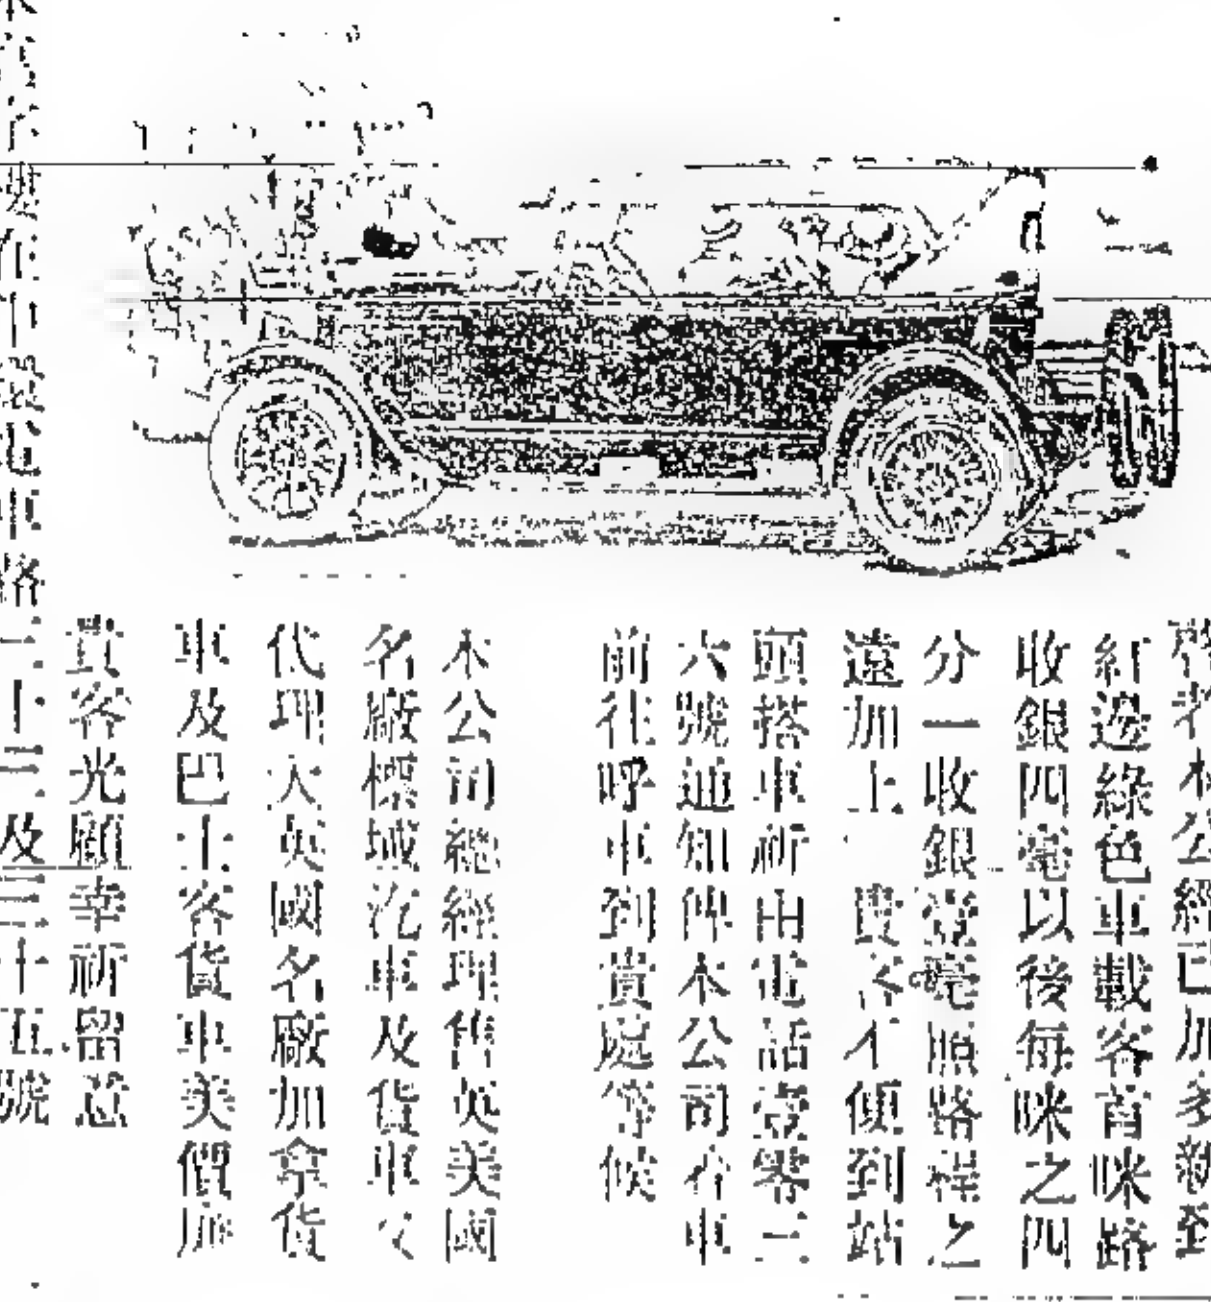 啓者本公經已加多新到
紅邊綠色車載客首咪路
收銀四毫以後每咪之四
分一收銀壹毫照路程之
遠加上 貴客不便到站
頭搭車祈由電話壹零三
六號通知俾本公司着車
前往呼車到貴處等候
本公司總經理售英美國
名廠標域汽車及貨車又
代理大英國名廠加拿貨
車及巴士客貨車美價廉
貴客光顧幸祈留意
在巿電車路三十三及三十五號